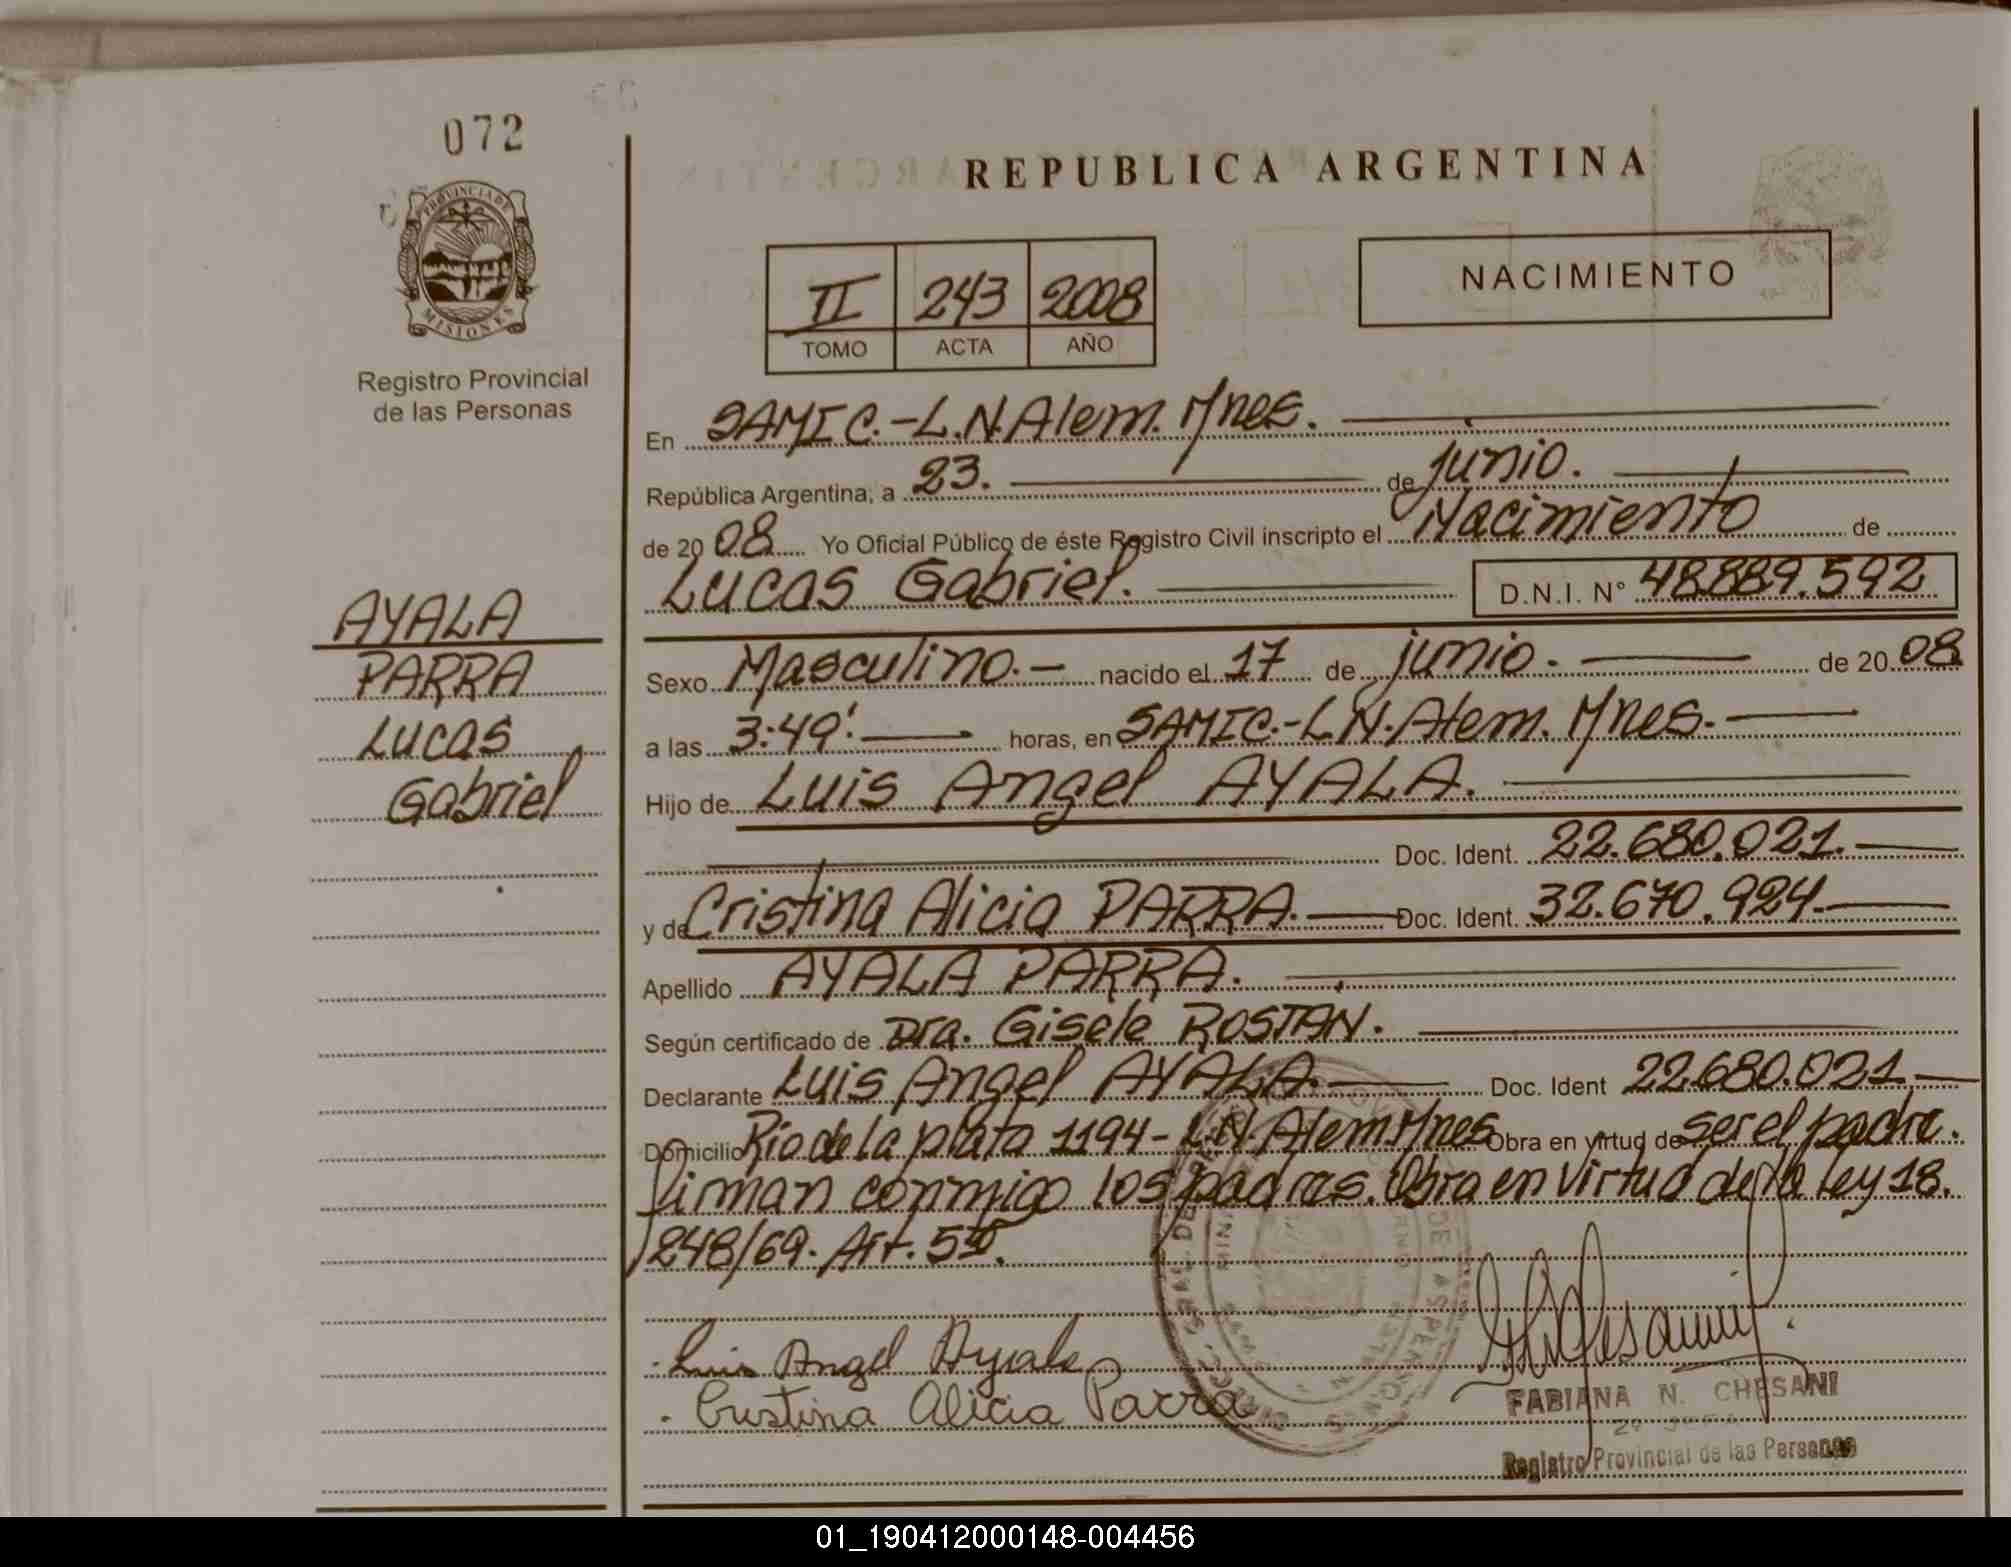 072
PROVINCIA DE
MISIONES
Registro Provincial
de las Personas
AYALA
PARRA
Lucas
Gabriel
REPUBLICA ARGENTINA
II 243 2008
TOMO ACTA AÑO
NACIMIENTO
En SAMIC.-L.N.Alem. Mnes.
República Argentina, a 23. de junio.
de 2008 Yo Oficial Público de éste Registro Civil inscripto el Nacimiento de
Lucas Gabriel. D.N.I. N° 48.889.592
Sexo Masculino.- nacido el 17 de junio. de 2008
a las 3:49'. horas, en SAMIC.-L.N.Alem. Mnes.-
Hijo de Luis Angel AYALA.
Doc. Ident. 22.680.021.
y de Cristina Alicia PARRA. Doc. Ident. 32.670.924.
Apellido AYALA PARRA.
Según certificado de Dra. Gisele ROSTAN.
Declarante Luis Angel AYALA. Doc. Ident 22.680.021
Domicilio Rio de la plata 1194-L.N.Alem.Mnes Obra en virtud de ser el padre.
Firman conmigo los padres. Obra en virtud de la Ley 18.
248/69. Art. 5to.
Luis Angel Ayala
Cristina Alicia Parra
FABIANA N. CHESANI
Registro Provincial de las Personas
01_190412000148-004456